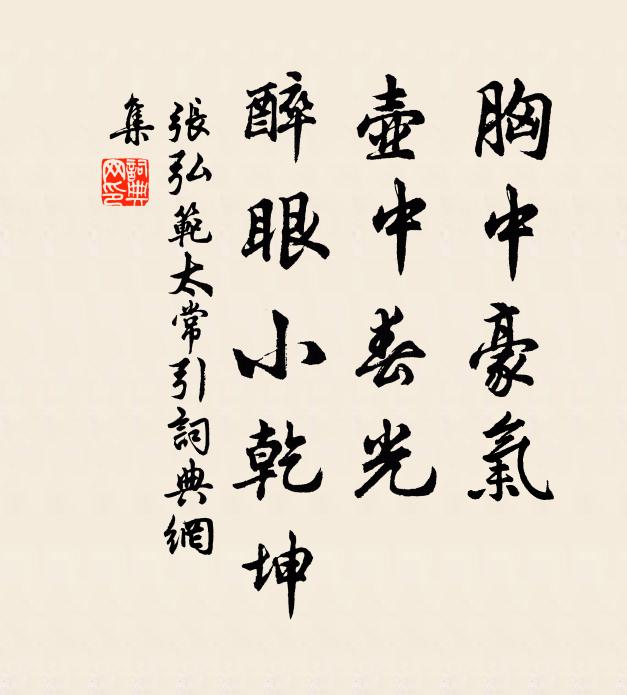 胸中豪氣
壺中春光
醉眼小乾坤
張弘範太常引詞典網
集
詞典
网印